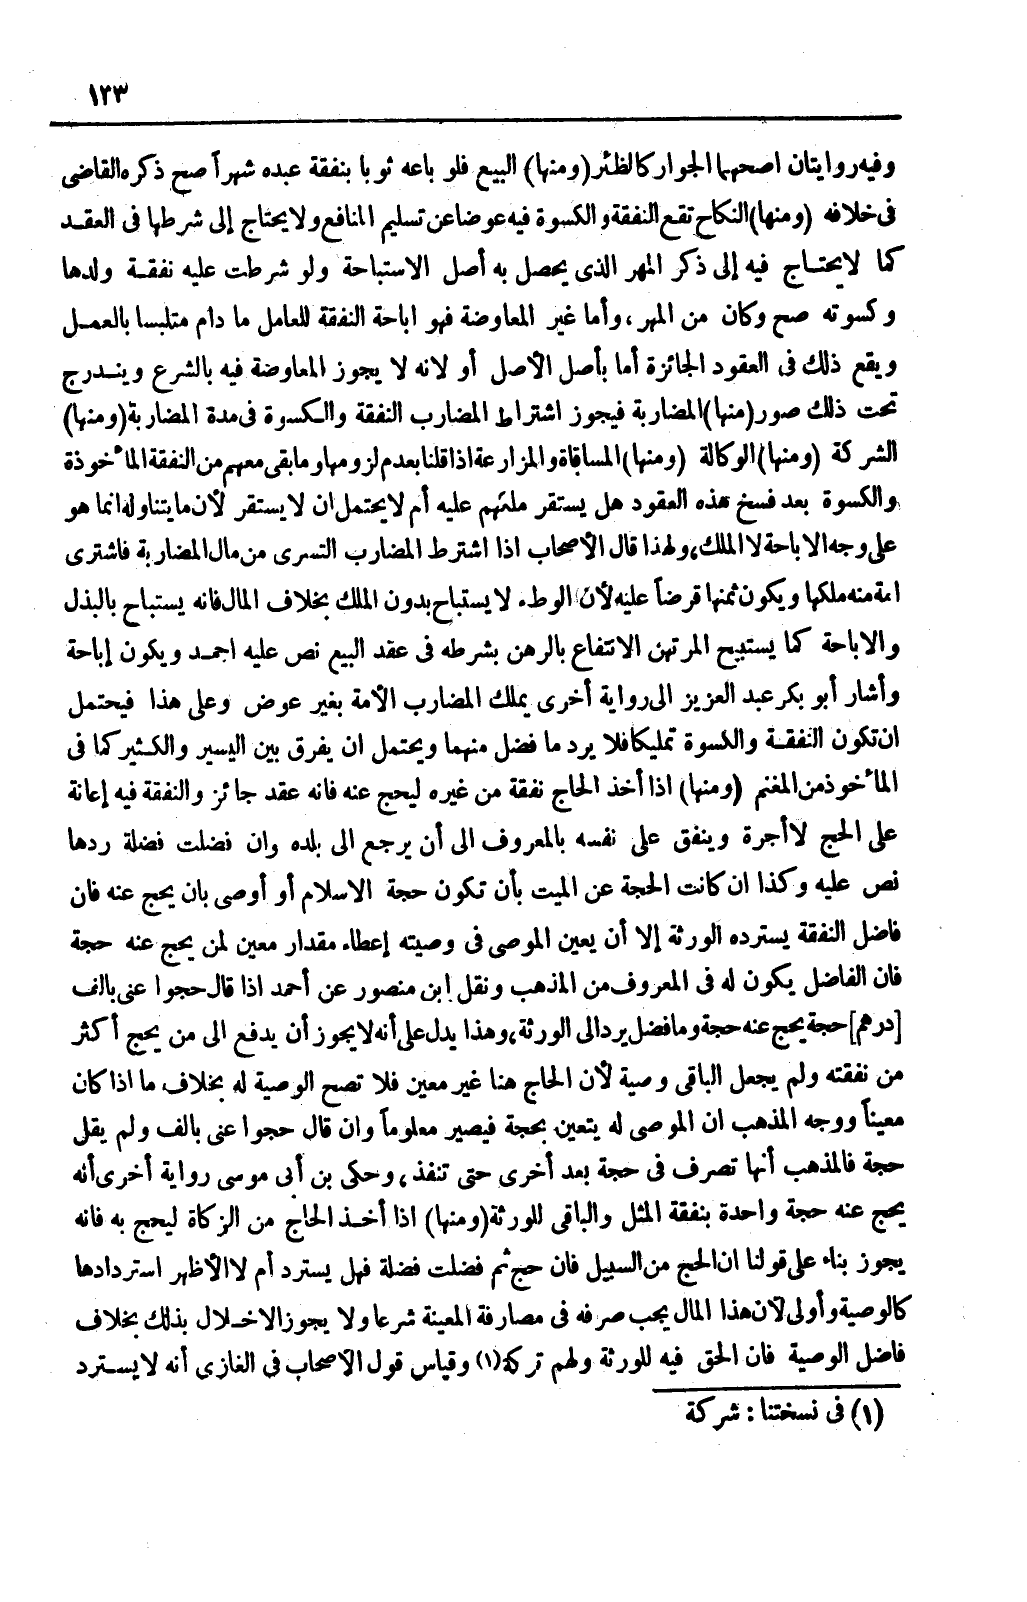 ١٢٣
وفيه روايتان اصحهما الجوار كالظئر (ومنها) البيع فلو باعه ثوبا بنفقة عبده شهراً صح ذكره القاضى
فى خلافه (ومنها) النكاح تقع النفقة والكسوة فيه عوضا عن تسليم المنافع ولا يحتاج إلى شرطها فى العقد
كما لا يحتاج فيه إلى ذكر المهر الذى يحصل به أصل الاستباحة ولو شرطت عليه نفقة ولدها
وكسوته صح وكان من المهر، وأما غير المعاوضة فهو اباحة النفقة للعامل ما دام متلبسا بالعمل
ويقع ذلك فى العقود الجائزة أما بأصل الأصل أو لانه لا يجوز المعاوضة فيه بالشرع ويندرج
تحت ذلك صور (منها) المضاربة فيجوز اشتراط المضارب النفقة والكسوة فى مدة المضاربة (ومنها)
الشركة (ومنها) الوكالة (ومنها) المساقاة والمزارعة اذا قلنا بعدم لزومها وما بقى معهم من النفقة المأخوذة
والكسوة بعد فسخ هذه العقود هل يستقر ملكهم عليه أم لا يحتمل ان لا يستقر لأن ما يتناوله انما هو
على وجه الاباحة لا الملك، ولهذا قال الأصحاب اذا اشترط المضارب التسرى من مال المضاربة فاشترى
امة منه ملكها ويكون ثمنها قرضاً عليه لأن الوطء لا يستباح بدون الملك بخلاف المال فانه يستباح بالبذل
والاباحة كما يستبيح المرتهن الانتفاع بالرهن بشرطه فى عقد البيع نص عليه احمد ويكون إباحة
وأشار أبو بكر عبد العزيز الى رواية أخرى يملك المضارب الأمة بغير عوض وعلى هذا فيحتمل
ان تكون النفقة والكسوة تمليكا فلا يرد ما فضل منهما ويحتمل ان يفرق بين اليسير والكثير كما فى
المأخوذ من المغنم (ومنها) اذا أخذ الحاج نفقة من غيره ليحج عنه فانه عقد جائز والنفقة فيه إعانة
على الحج لا أجرة وينفق على نفسه بالمعروف الى أن يرجع الى بلده وان فضلت فضلة ردها
نص عليه وكذا ان كانت الحجة عن الميت بأن تكون حجة الاسلام أو أوصى بان يحج عنه فان
فاضل النفقة يسترده الورثة إلا أن يعين الموصى فى وصيته إعطاء مقدار معين لمن يحج عنه حجة
فان الفاضل يكون له فى المعروف من المذهب ونقل ابن منصور عن أحمد اذا قال حجوا عنى بالف
[درهم] حجة يحج عنه حجة وما فضل يرد الى الورثة، وهذا يدل على أنه لا يجوز أن يدفع الى من يحج أكثر
من نفقته ولم يجعل الباقى وصية لأن الحاج هنا غير معين فلا تصح الوصية له بخلاف ما اذا كان
معيناً ووجه المذهب ان الموصى له يتعين بحجة فيصير معلوماً وان قال حجوا عنى بالف ولم يقل
حجة فالمذهب أنها تصرف فى حجة بعد أخرى حتى تنفذ، وحكى بن أبى موسى رواية أخرى أنه
يحج عنه حجة واحدة بنفقة المثل والباقى للورثة (ومنها) اذا أخذ الحاج من الزكاة ليحج به فانه
يجوز بناء على قولنا ان الحج من السبيل فان حج ثم فضلت فضلة فهل يسترد أم لا الأظهر استردادها
كالوصية وأولى لأن هذا المال يجب صرفه فى مصارفة المعينة شرعا ولا يجوز الاخلال بذلك بخلاف
فاضل الوصية فان الحق فيه للورثة ولهم تركة (١) وقياس قول الأصحاب فى الغازى أنه لا يسترد
(١) فى نسختنا: شركة